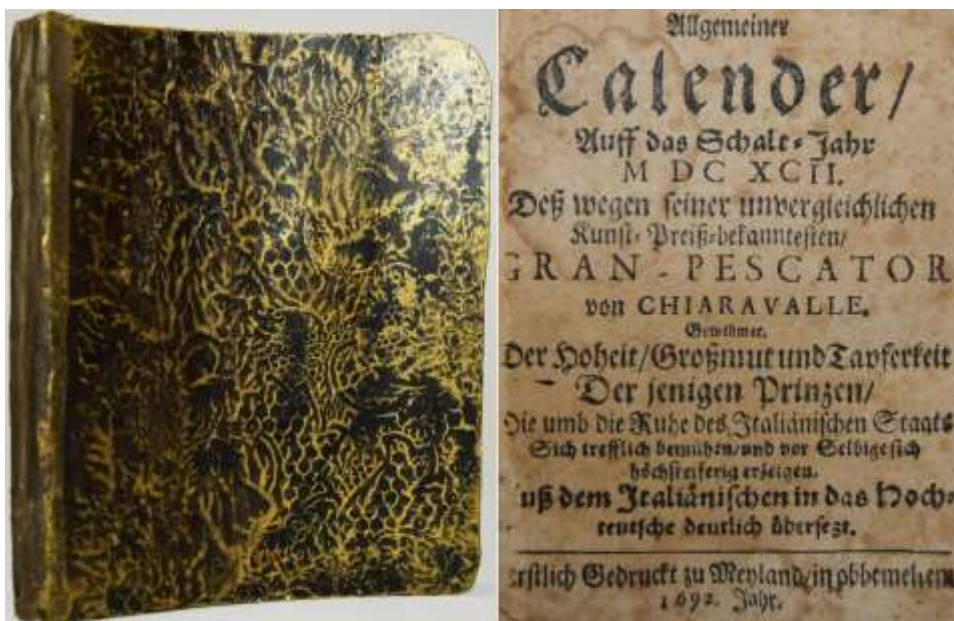 Allgemeiner
Calender/
Auff das Schalt-Jahr
M DC XCII.
Deß wegen seiner unvergleichlichen
Kunst- Preiß-bekanntesten/
GRAN-PESCATOR
von CHIARAVALLE.
Gewidmet.
Der Hoheit/Großmut und Tapferkeit
Der jenigen Prinzen/
Die umb die Ruhe des Italiänischen Staats
Sich trefflich bemühen/und vor Selbige sich
höchsteiferig erzeigen.
uß dem Italiänischen in das Hoch-
teutsche deutlich übersezt.
rstlich Gedruckt zu Meyland/in
1692. Jahr.